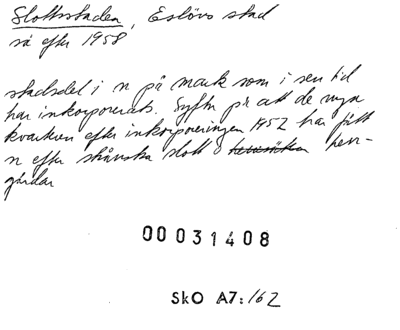 Slottsstaden, Eslövs stad
så efter 1958
stadsdel i n på mark som i sen tid
har inkorporerats. Syftar på att de nya
kvarteren efter inkorporeringen 1952 har fått
n efter skånska slott o herr-
gårdar
00031408
SkO A7:162